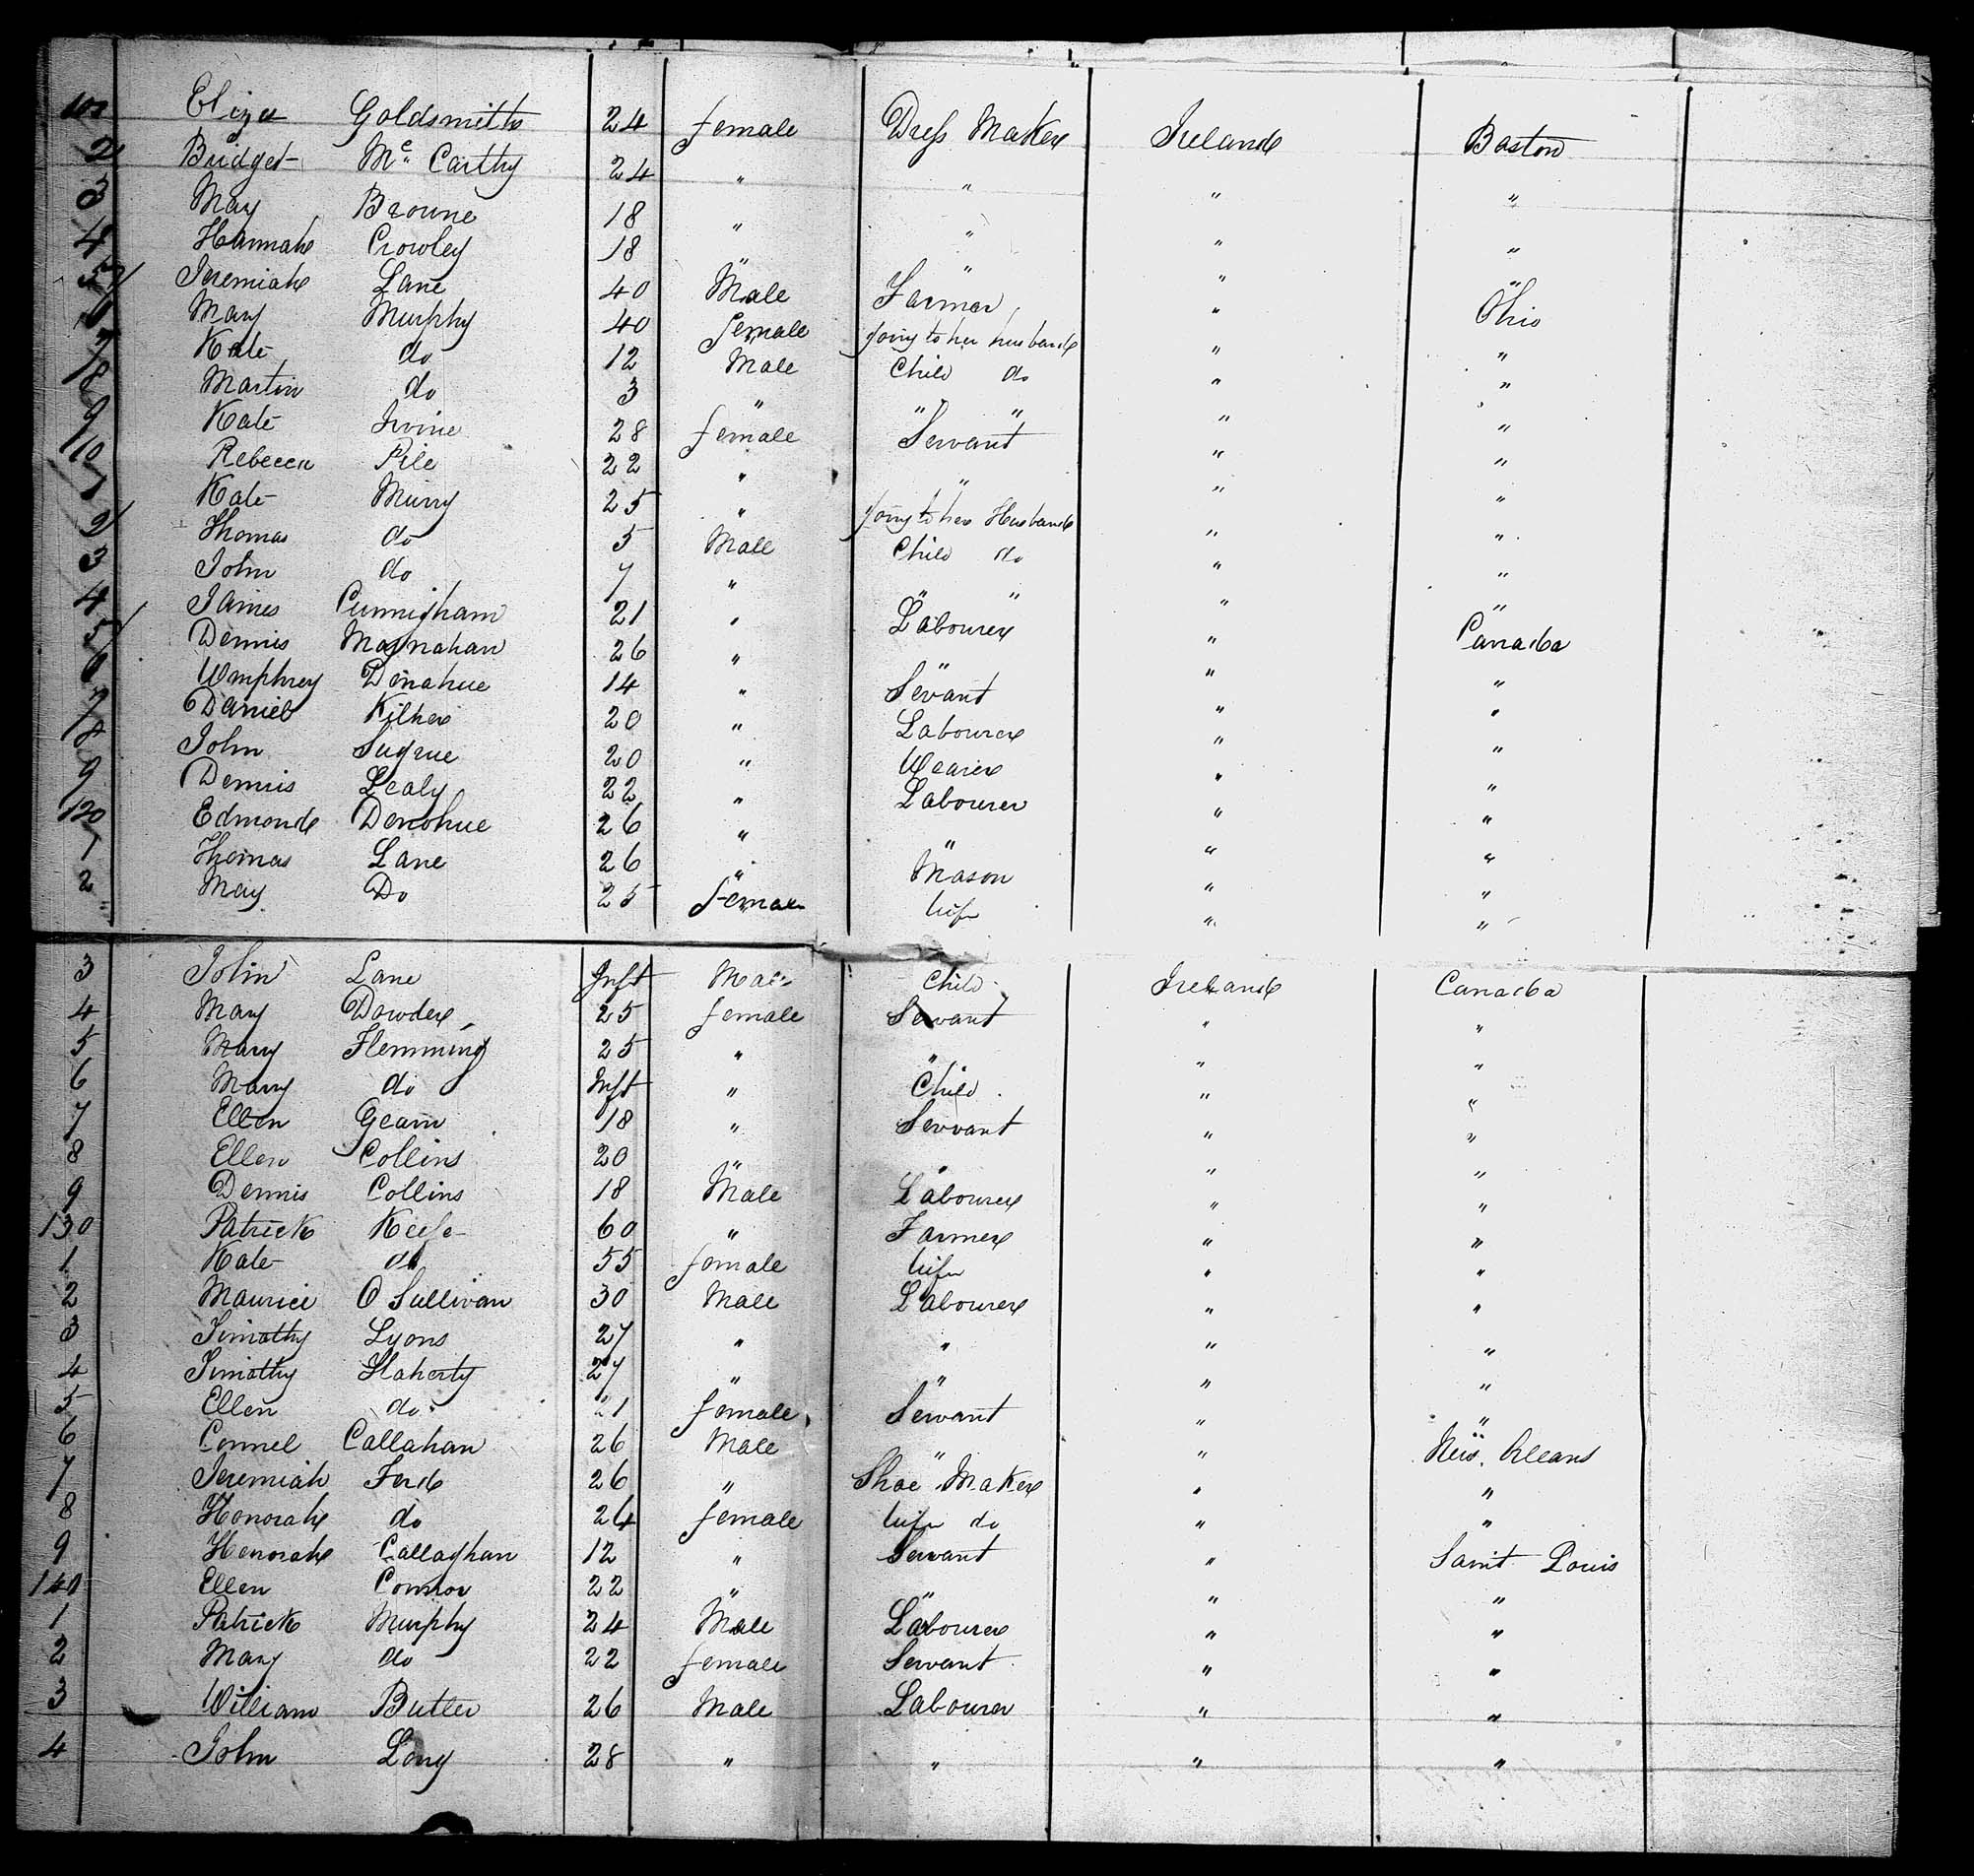 101 Eliza Goldsmith 24 female Dress Maker Ireland Boston
2 Bridget Mc Carthy 24 " " " "
3 Mary Browne 18 " " " "
4 Hannah Crowley 18 " " " "
5 Jeremiah Lane 40 Male Farmer " Ohio
6 Mary Murphy 40 female going to her husband " "
7 Kate do 12 Male Child do " "
8 Martin do 3 " " " " "
9 Kate Irvine 28 female Servant " "
110 Rebecca Pile 22 " " " "
1 Kate Murry 25 " going to her Husband " "
2 Thomas do 5 Male Child do " "
3 John do 7 " " " " "
4 James Cunnigham 21 " Labourer " Canada
5 Dennis 26 " " " "
6 Umphrey Donahue 14 " Sevant " "
7 Daniel 20 " Labourer " "
8 John Sugrue 20 " " "
9 Dennis Lealy 22 " Labourer " "
120 Edmond Donohue 26 " " " "
1 Thomas Lane 26 " Mason " "
2 Mary Do 25 female wife " "
3 John Lane Inft Male Child Ireland Canada
4 Mary Dowder 25 female Servant " "
5 Mary Flemming 25 " " " "
6 Mary do Inft " Child " "
7 Ellen 18 " Servant " "
8 Ellen Collins 20 " " " "
9 Dennis Collins 18 Male Labourer " "
130 Patrick Keefe 60 " Farmer " "
1 Kate do 55 female wife " "
2 Maurice O Sullivan 30 Male Labourer " "
3 Timothy Lyons 27 " " " "
4 Timothy Flaherty 27 " " " "
5 Ellen do 21 female Servant " "
6 Connel Callahan 26 Male " " New Orleans
7 Jeremiah Ford 26 " Shoe Maker " "
8 Honorah do 24 female wife do " "
9 Honorah Callaghan 12 " Servant " Saint Louis
140 Ellen Connor 22 " " " "
1 Patrick Murphy 24 Male Labourer " "
2 Mary do 22 female Servant " "
3 William Butler 26 Male Labourer " "
4 John Long 28 " " " "